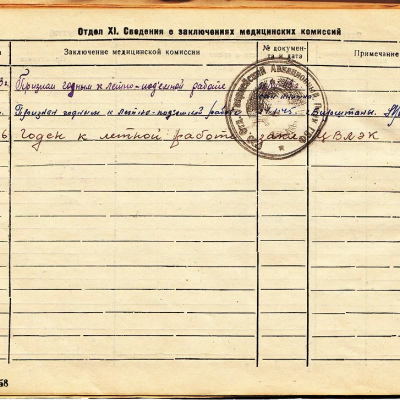 Отдел XI. Сведения о заключениях медицинских комиссий
Заключение медицинской комиссии
№ докумен-
та и дата
Примечание
3г. Признан годным к летно-подъемной работе
Признан годным к летно-подъемной работе Бирштаны.
6 годен к летной работе закл. ЦВЛЭК
58